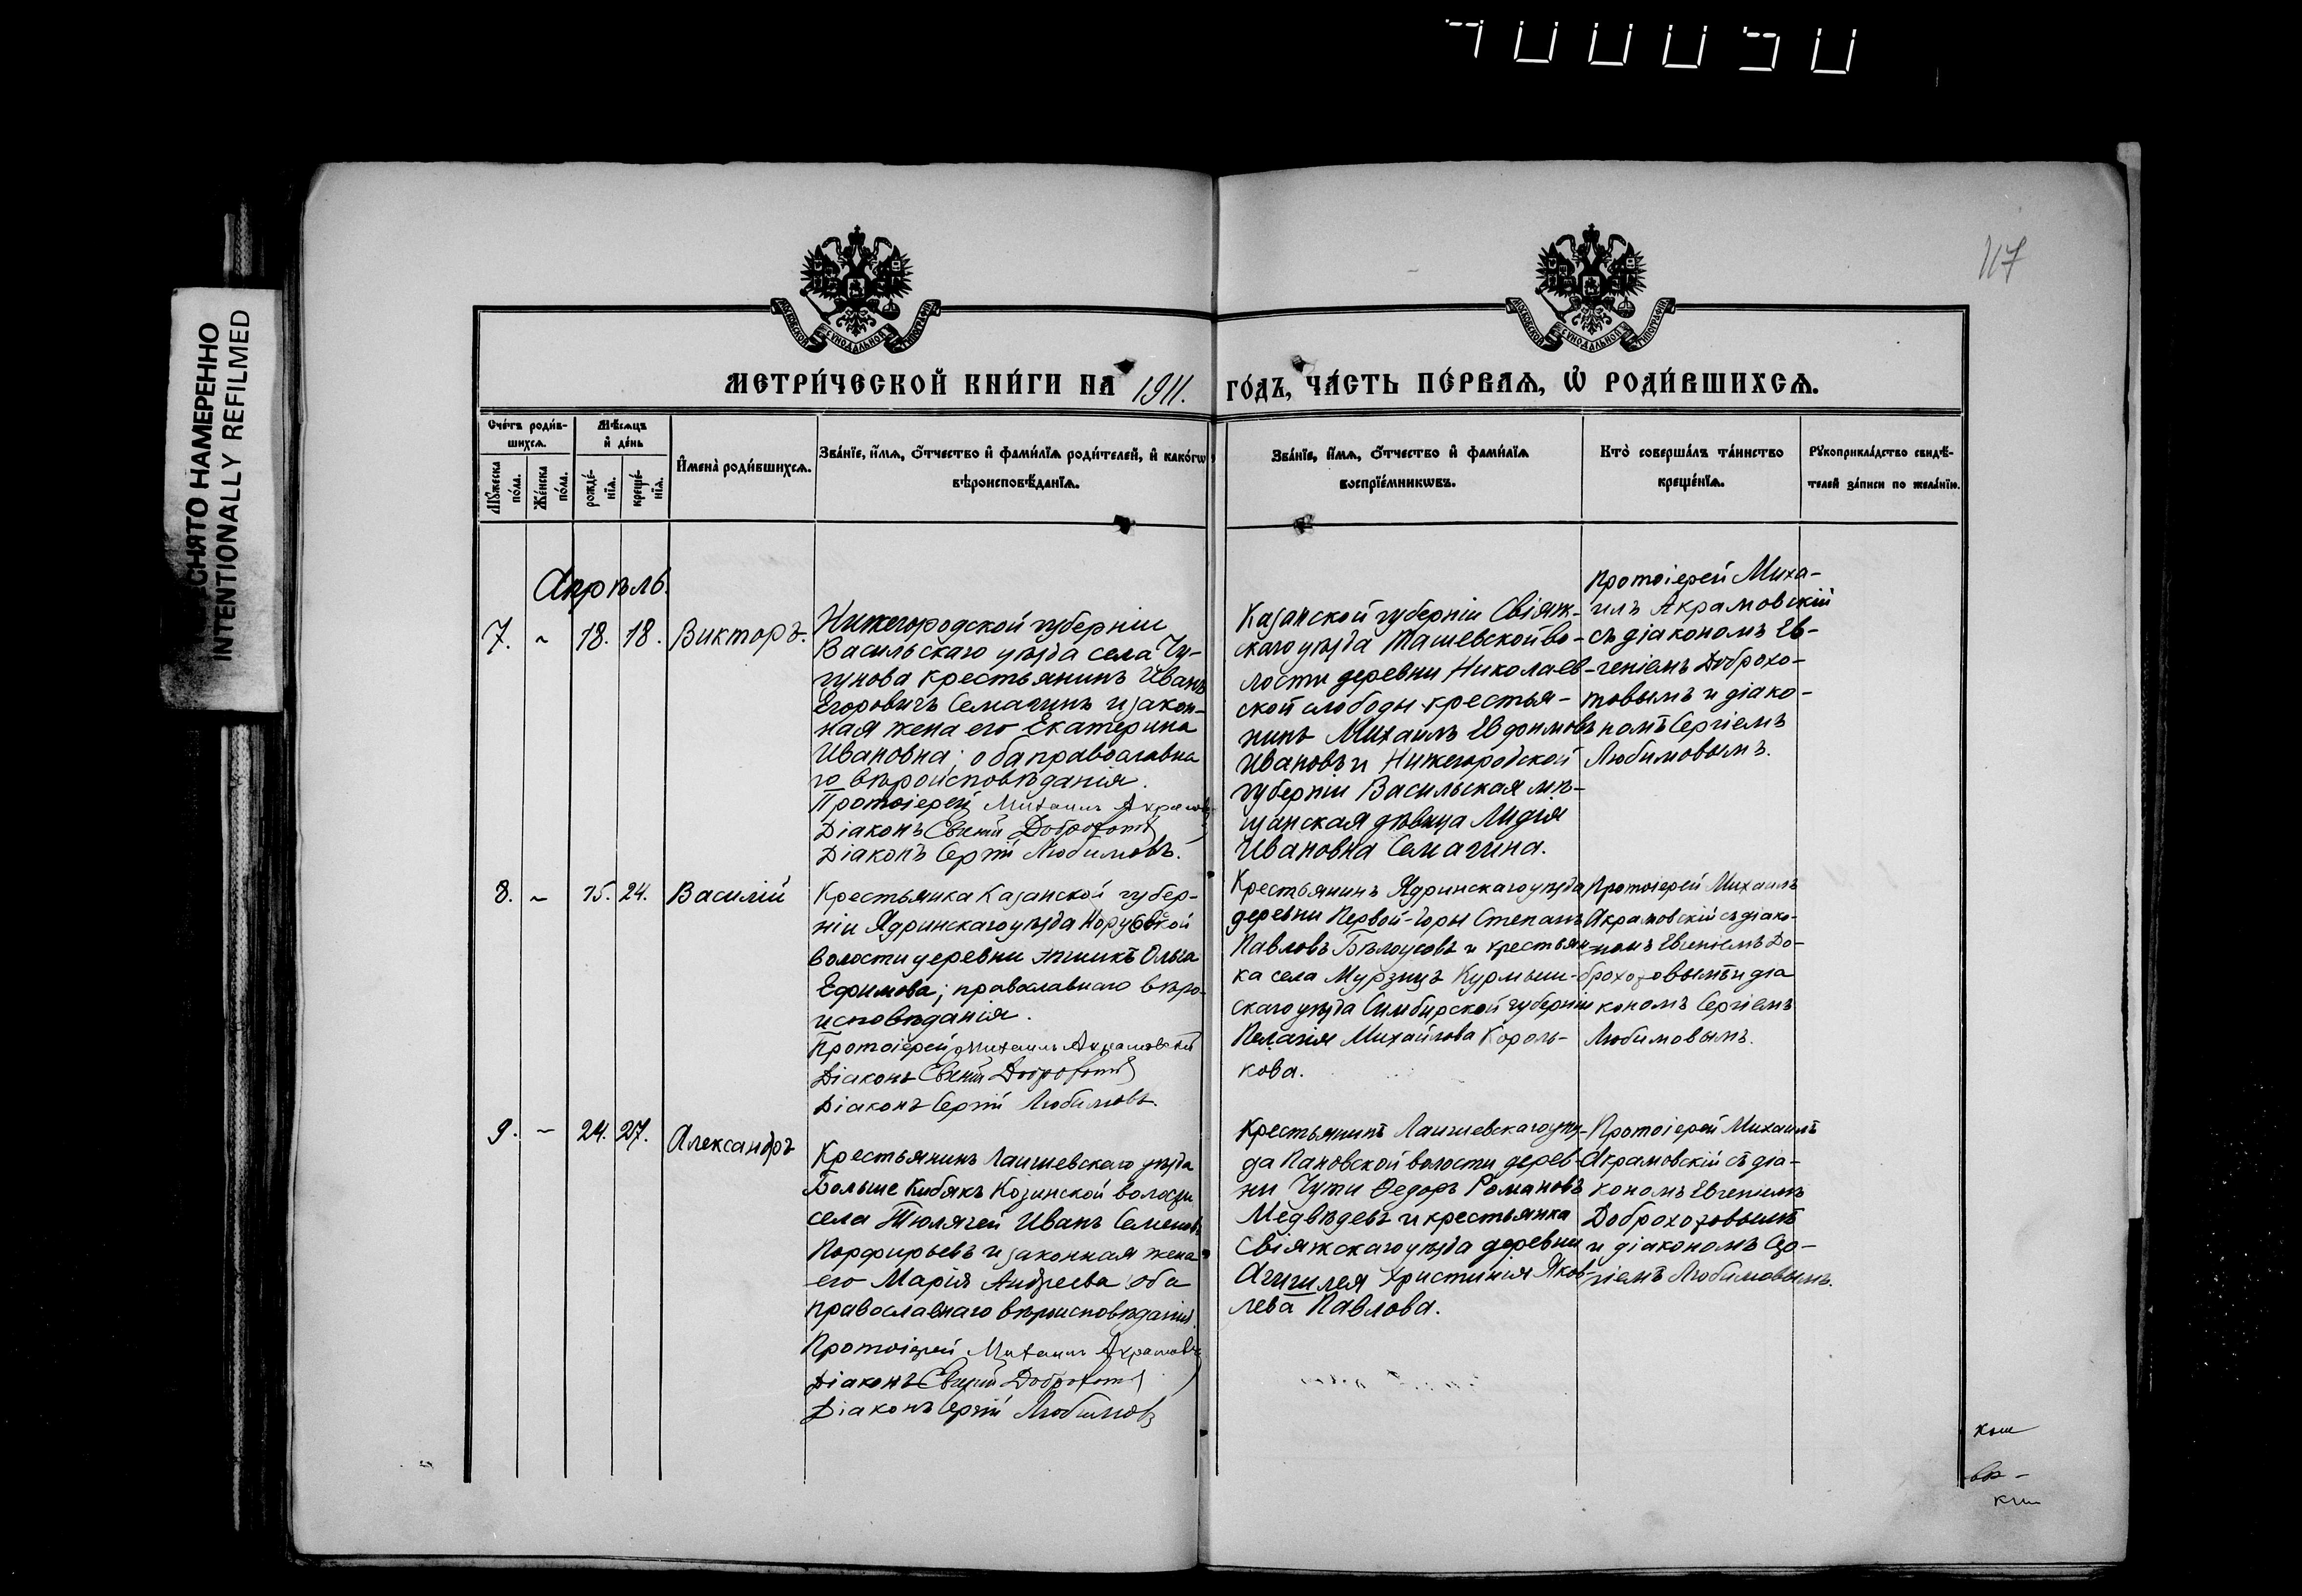 ПЕРЕСНЯТО НАМЕРЕННО
INTENTIONALLY REFILMED
117
МОСКОВСКОЙ СѴНОДАЛЬНОЙ ТИПОГРАФІИ
МОСКОВСКОЙ СѴНОДАЛЬНОЙ ТИПОГРАФІИ
МЕТРИ́ЧЕСКОЙ КНИ́ГИ НА 1911. ГО́ДЪ, ЧА́СТЬ ПЕ́РВАѦ, Ѡ҆ РОДИ́ВШИХСѦ.
Сче́тъ роди́в-
шихсѧ.
Мѣ́сѧцъ
и҆ де́нь
Мꙋ́жеска
по́ла.
Же́нска
по́ла.
рожде́-
нїѧ.
креще́-
нїѧ.
И҆мена̀ роди́вшихсѧ.
Зва́нїе, и҆́мѧ, ѻ҆́тчество и҆ фами́лїѧ роди́телей, и҆ како́гѡ
вѣроисповѣ́данїѧ.
Зва́нїе, и҆́мѧ, ѻ҆́тчество и҆ фами́лїѧ
воспрїе́мникѡвъ.
Кто̀ соверша́лъ та́инство
креще́нїѧ.
Рꙋкоприкла́дство свидѣ́-
телей за́писи по жела́нїю.
Апрѣль.
7. ~ 18. 18. Викторъ.
Нижегородской губерніи
Васильскаго уѣзда села Чу-
гунова крестьянинъ Иванъ
Егоровичъ Семагинъ и закон-
ная жена его Екатерина
Ивановна; оба православна
го вѣроисповѣданія.
Протоіерей Михаилъ Акрамов
Діаконъ Евгеній Доброхотов
Діаконъ Сергій Любимовъ.
Казанской губерніи Свіяж-
скаго уѣзда Ташевской во-
лости деревни Николаев-
ской слободы крестья-
нинъ Михаилъ Евдокимовъ
Ивановъ и Нижегородской
губерніи Васильская мѣ-
щанская дѣвица Лидія
Ивановна Семагина.
Протоіерей Миха-
илъ Акрамовскій
съ діакономъ Ев-
геніемъ Доброхо-
товымъ и діако-
номъ Сергіемъ
Любимовымъ.
8. ~ 15. 24. Василій
Крестьянка Казанской губер-
ніи Ядринскаго уѣзда Норусовской
волости деревни Ольга
Ефимова; православнаго вѣро-
исповѣданія.
Протоіерей Михаилъ Акрамовскій
Діаконъ Евгеній Доброхотов
Діаконъ Сергій Любимовъ.
Крестьянинъ Ядринскаго уѣзда
деревни Первой-Горы Степанъ
Павловъ Бѣлоусовъ и крестьян-
ка села Мурзицъ Курмыш-
скаго уѣзда Симбирской губерніи
Пелагія Михайлова Король-
кова.
Протоіерей Михаилъ
Акрамовскій съ діако-
номъ Евгеніемъ До-
брохотовымъ и діа
кономъ Сергіемъ
Любимовымъ.
9. ~ 24. 27. Александръ
Крестьянинъ Лаишевскаго уѣзда
Больше Кибякъ Козинской волости
села Тюлячей Иванъ Семеновъ
Порфирьевъ и законная жена
его Марія Андреева оба
православнаго вѣроисповѣданія.
Протоіерей Михаилъ Акрамовск
Діаконъ Евгеній Доброхотов
Діаконъ Сергій Любимовъ
Крестьянинъ Лаишевскаго уѣз-
да Пановской волости дерев-
ни Чути Ѳедоръ Романовъ
Медвѣдевъ и крестьянка
Свіяжскаго уѣзда деревни
Агишлея Христинія Яков-
лева Павлова.
Протоіерей Михаилъ
Акрамовскій съ діа-
кономъ Евгеніемъ
Доброхотовымъ
и діакономъ Сер-
гіемъ Любимовымъ.